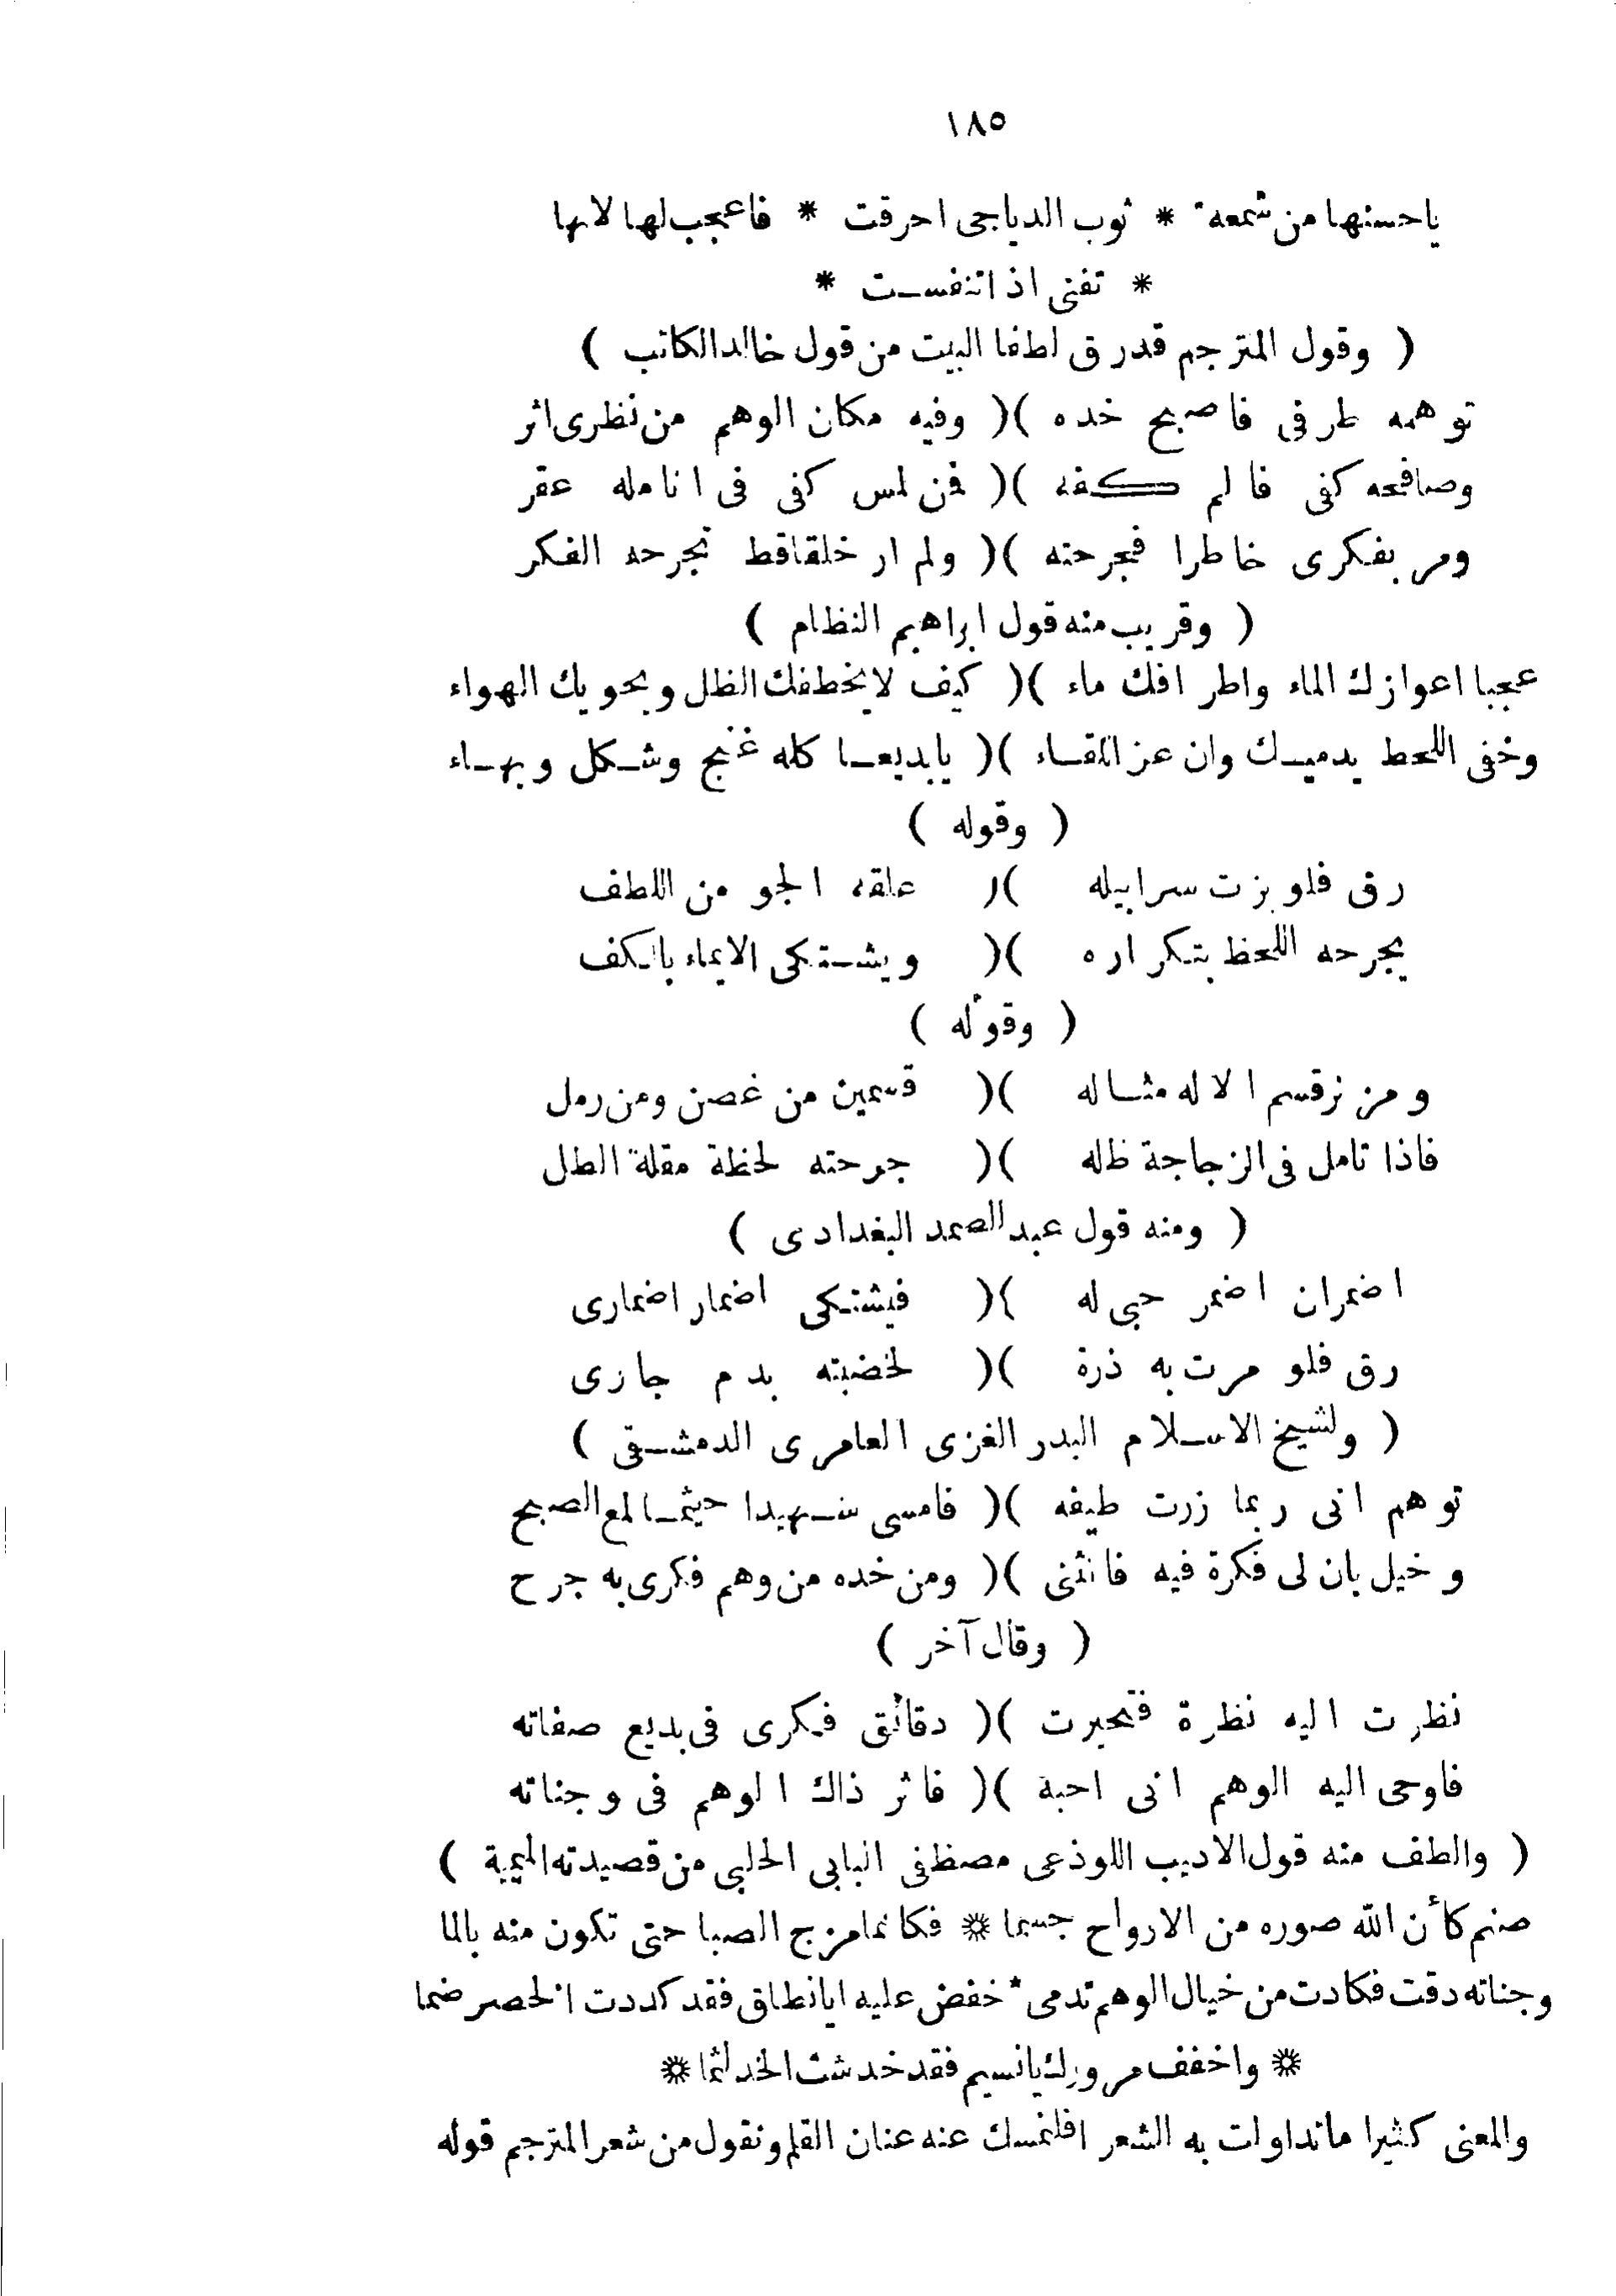 ١٨٥
ياحسنها من شمعة * ثوب الدياجى احرقت * فاعجب لها لانها
* تفنى اذا تنفست *
( وقول المترجم قدرق لطفا البيت من قول خالد الكاتب )
توهمه طرفى فاصبح خده )( وفيه مكان الوهم من نظرى اثر
وصافحه كفى فالم كفه )( فمن لمس كفى فى انامله عقر
ومر بفكرى خاطرا فجرحته )( ولم ار خلقا قط تجرحه الفكر
( وقريب منه قول ابراهيم النظام )
عجبا اعوازك الماء واطرافك ماء )( كيف لا يخطفك الظل ويحويك الهواء
وخفى اللحظ يدميك وان عز اللقاء )( يابديعا كله غنج وشكل وبهاء
( وقوله )
رق فلو بزت سرابيله )( علقه الجو من اللطف
يجرحه اللحظ بتكراره )( ويشتكى الايماء بالكف
( وقوله )
ومزنر قسم الاله مثاله )( قسمين من غصن ومن رمل
فاذا تامل فى الزجاجة ظله )( جرحته لحظة مقلة الظل
( ومنه قول عبد الصمد البغدادى )
اضمر ان اضمر حبى له )( فيشتكى اضمار اضمارى
رق فلو مرت به ذرة )( لخضبته بدم جارى
( ولشيخ الاسلام البدر الغزى العامرى الدمشقى )
توهم انى ربما زرت طيفه )( فامسى شهيدا حيثما لمع الصبح
وخيل بان لى فكرة فيه فانثنى )( ومن خده من وهم فكرى به جرح
( وقال آخر )
نظرت اليه نظرة فتحيرت )( دقائق فكرى فى بديع صفاته
فاوحى اليه الوهم انى احبة )( فاثر ذاك الوهم فى وجناته
( والطف منه قول الاديب اللوذعى مصطفى البابى الحلبى من قصيدته الميمية )
صنم كأن الله صوره من الارواح جسما * فكانما مزج الصبا حتى تكون منه بالما
وجناته دقت فكادت من خيال الوهم تدمى * خفض عليه ايانطاق فقد كددت الخصر ضما
* واخفف مرورك يانسيم فقد خدشت الخد لثما *
والمعنى كثيرا ماتداولت به الشعرا فلنمسك عنه عنان القلم ونقول من شعر المترجم قوله